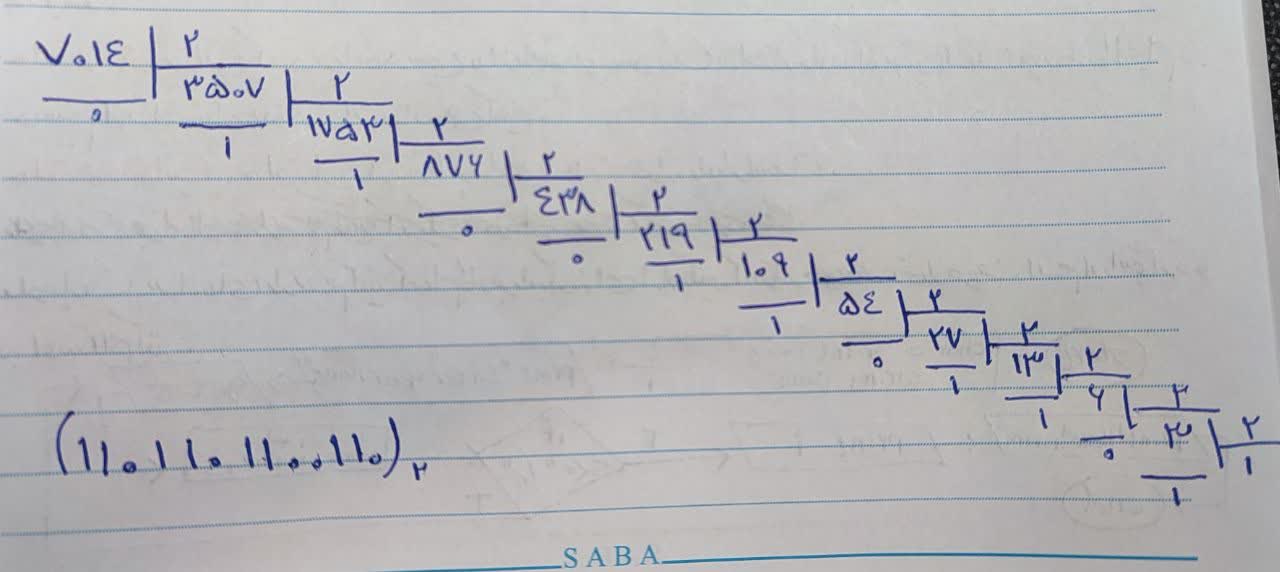 ۷۰۱٤ ۲
۰ ۳۵۰۷ ۲
۱ ۱۷۵۳ ۲
۱ ۸۷۶ ۲
۰ ٤۳۸ ۲
۰ ۲۱۹ ۲
۱ ۱۰۹ ۲
۱ ۵٤ ۲
۰ ۲۷ ۲
۱ ۱۳ ۲
۱ ۶ ۲
۰ ۳ ۲
۱ ۱
(۱۱۰۱۱۰۱۱۰۰۱۱۰)۲
SABA